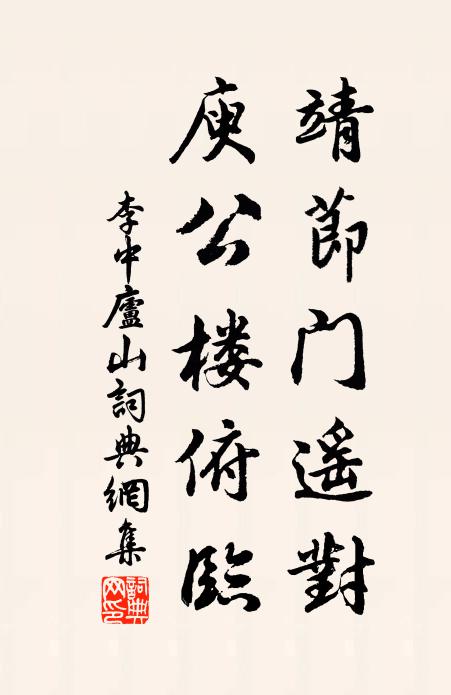 靖節门遥對
庾公楼俯臨
李中廬山詞典網集
詞典网印